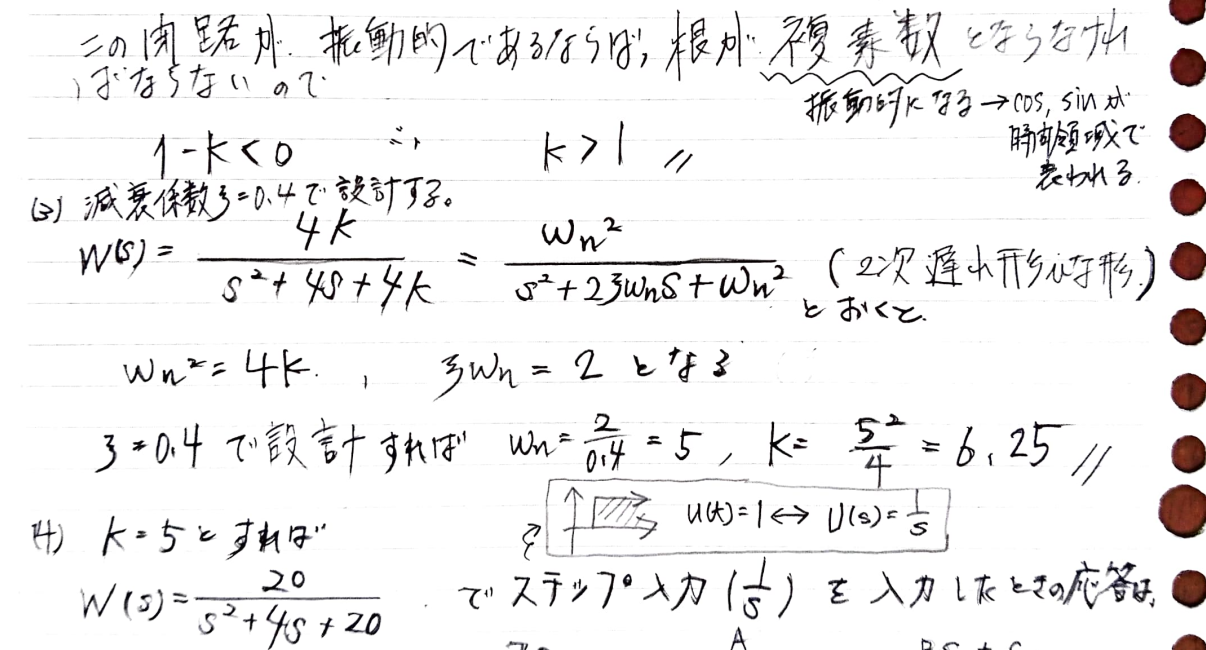 この閉路が、振動的であるならば、根が複素数とならなけれ
ばならないので
振動的になる→cos, sinが
時間領域で
表われる.
1-k<0 ∴, k>1 //
(3) 減衰係数ζ=0.4で設計する。
W(s) = 4k / (s²+4s+4k) = ωn² / (s²+2ζωns+ωn²) (2次遅れ形な形)
とおくと.
ωn² = 4k. , ζωn = 2 となる
ζ=0.4で設計すれば ωn = 2/0.4 = 5, k = 5²/4 = 6.25 //
u(t)=1 ↔ U(s)=1/s
(4) k=5とすれば
W(s) = 20 / (s²+4s+20) . でステップ入力(1/s)を入力したときの応答は,
A